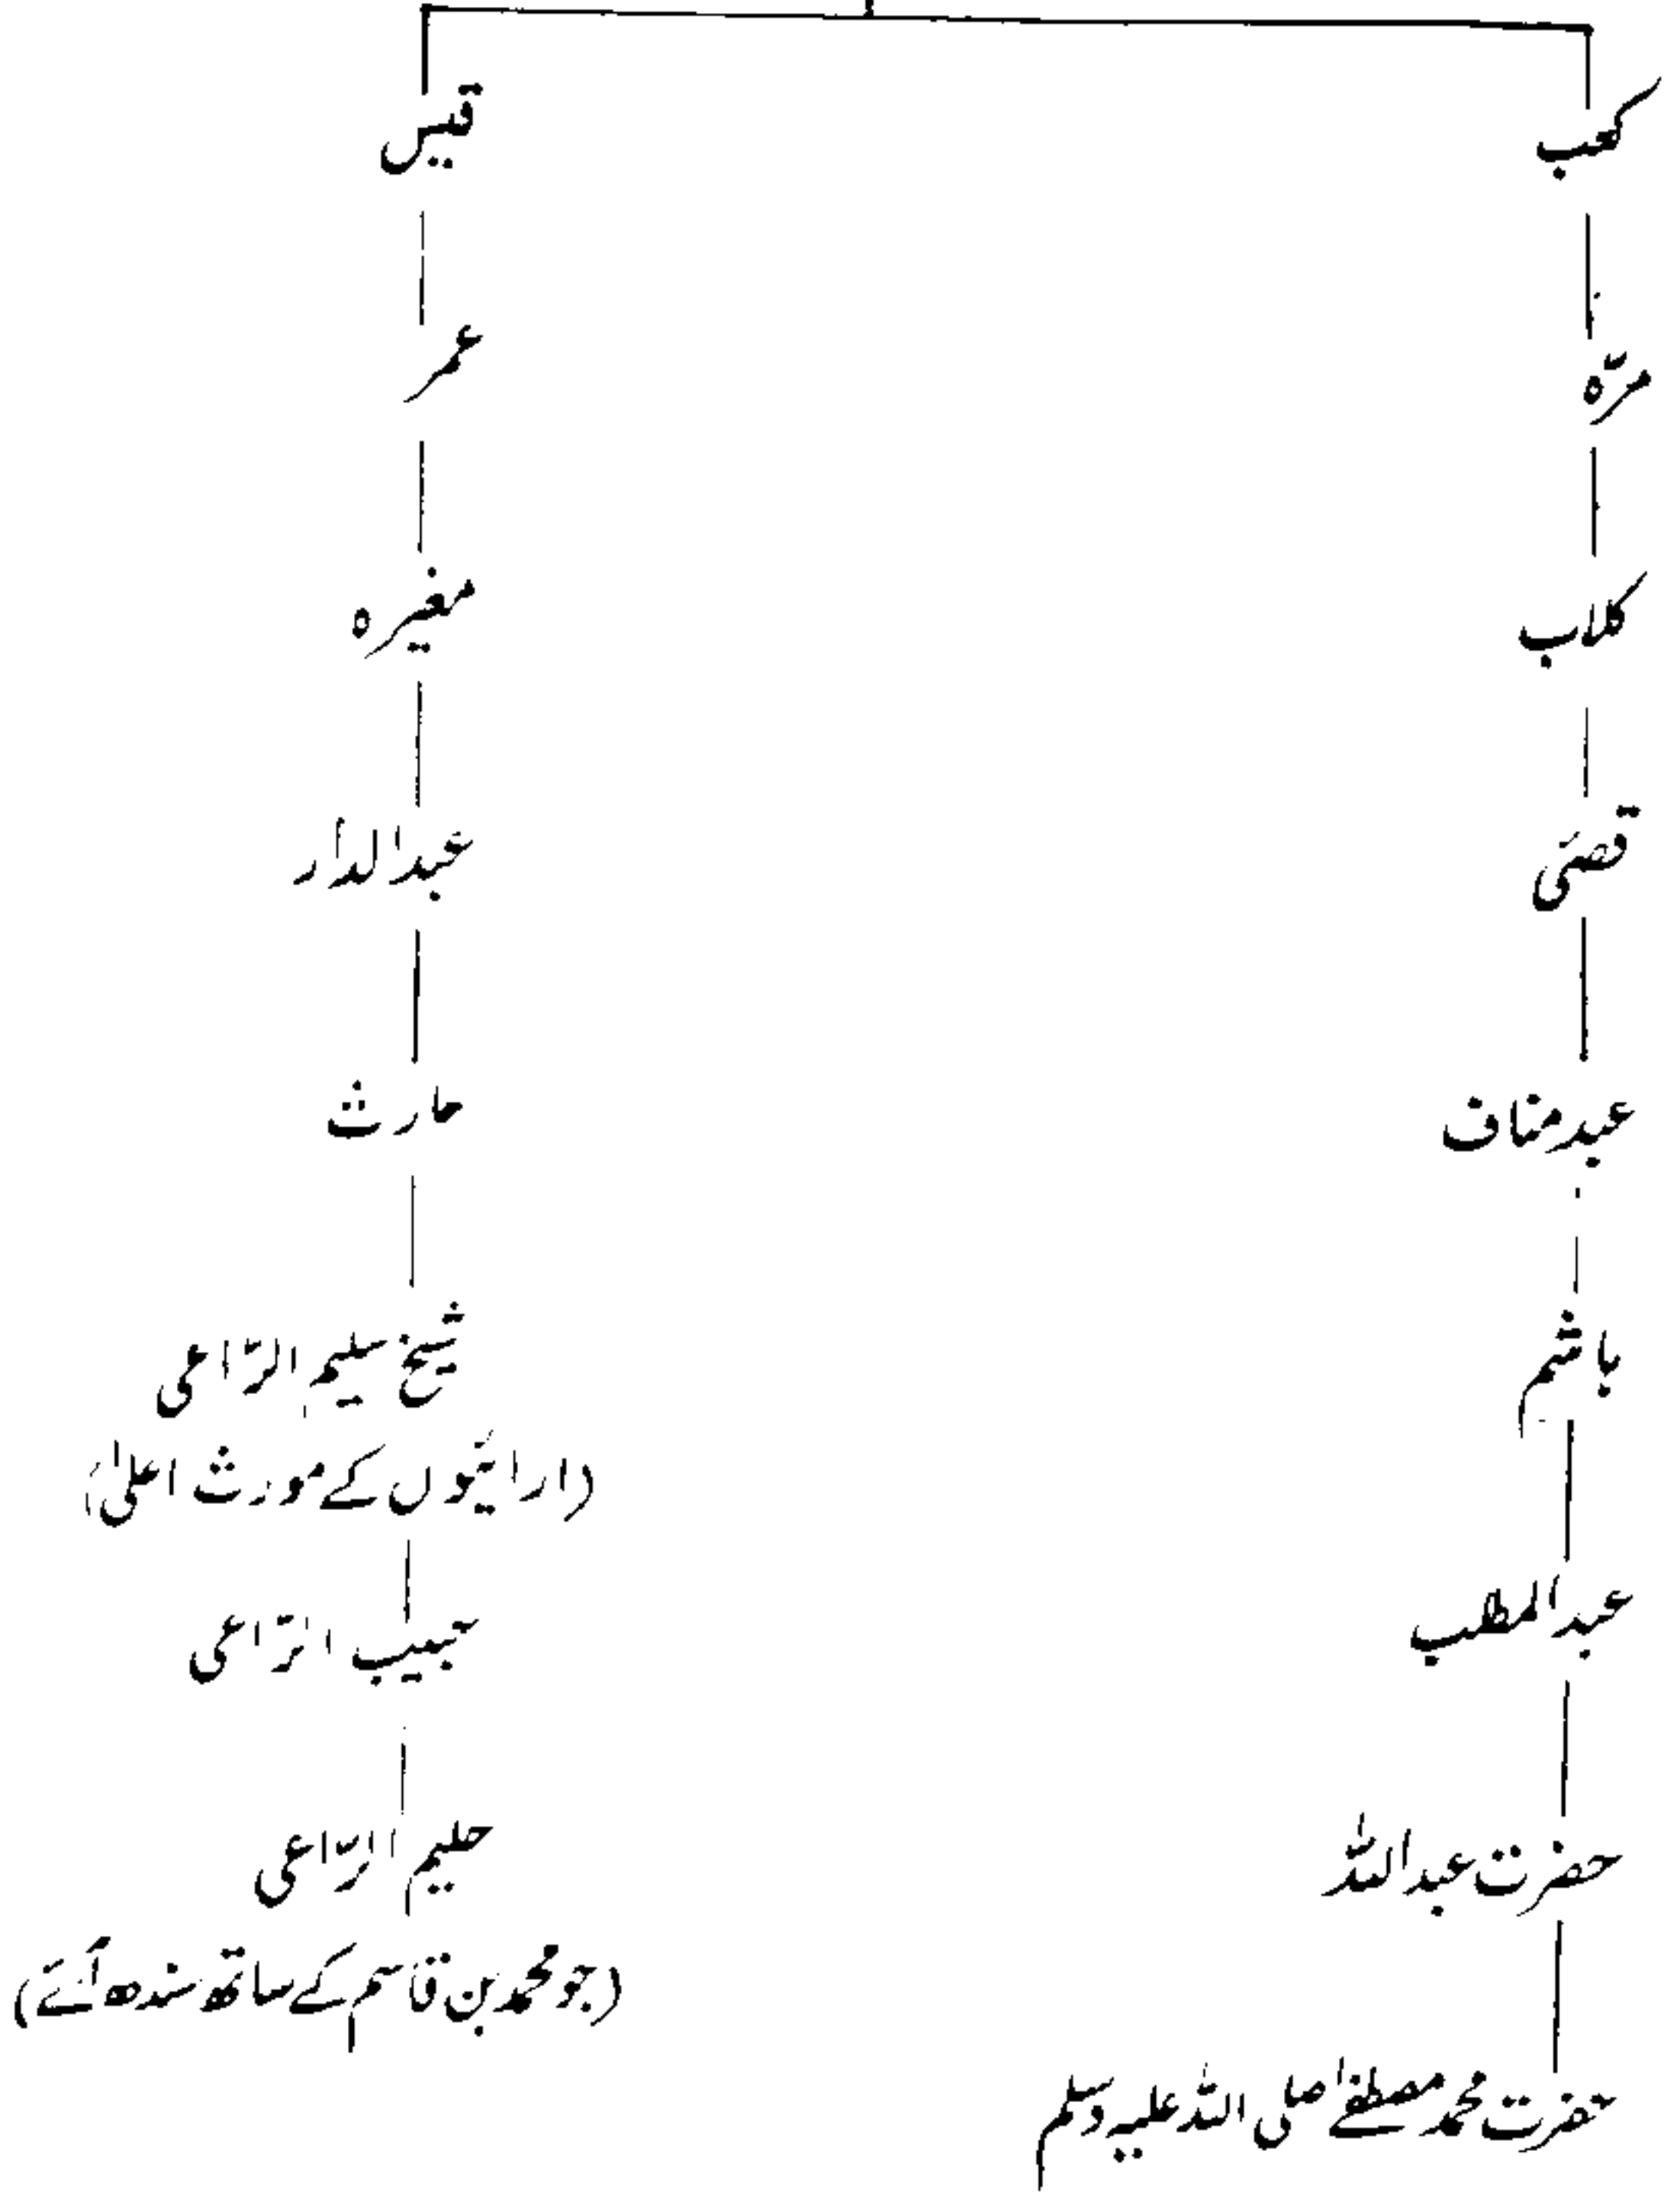 کعب
مرّہ
کلاب
قصّی
عبد مناف
ہاشم
عبد المطلب
حضرت عبد اللہ
حضرت محمد مصطفےٰ صلی اللہ علیہ وسلم
قیس
عمر
مغیرہ
عبد الدار
حارث
شیخ سلیم الرّاعی
(ارائیوں کے مورث اعلیٰ)
حبیب الرّاعی
حلیم الرّاعی
(جو محمد بن قاسم کے ساتھ سندھ آئے)